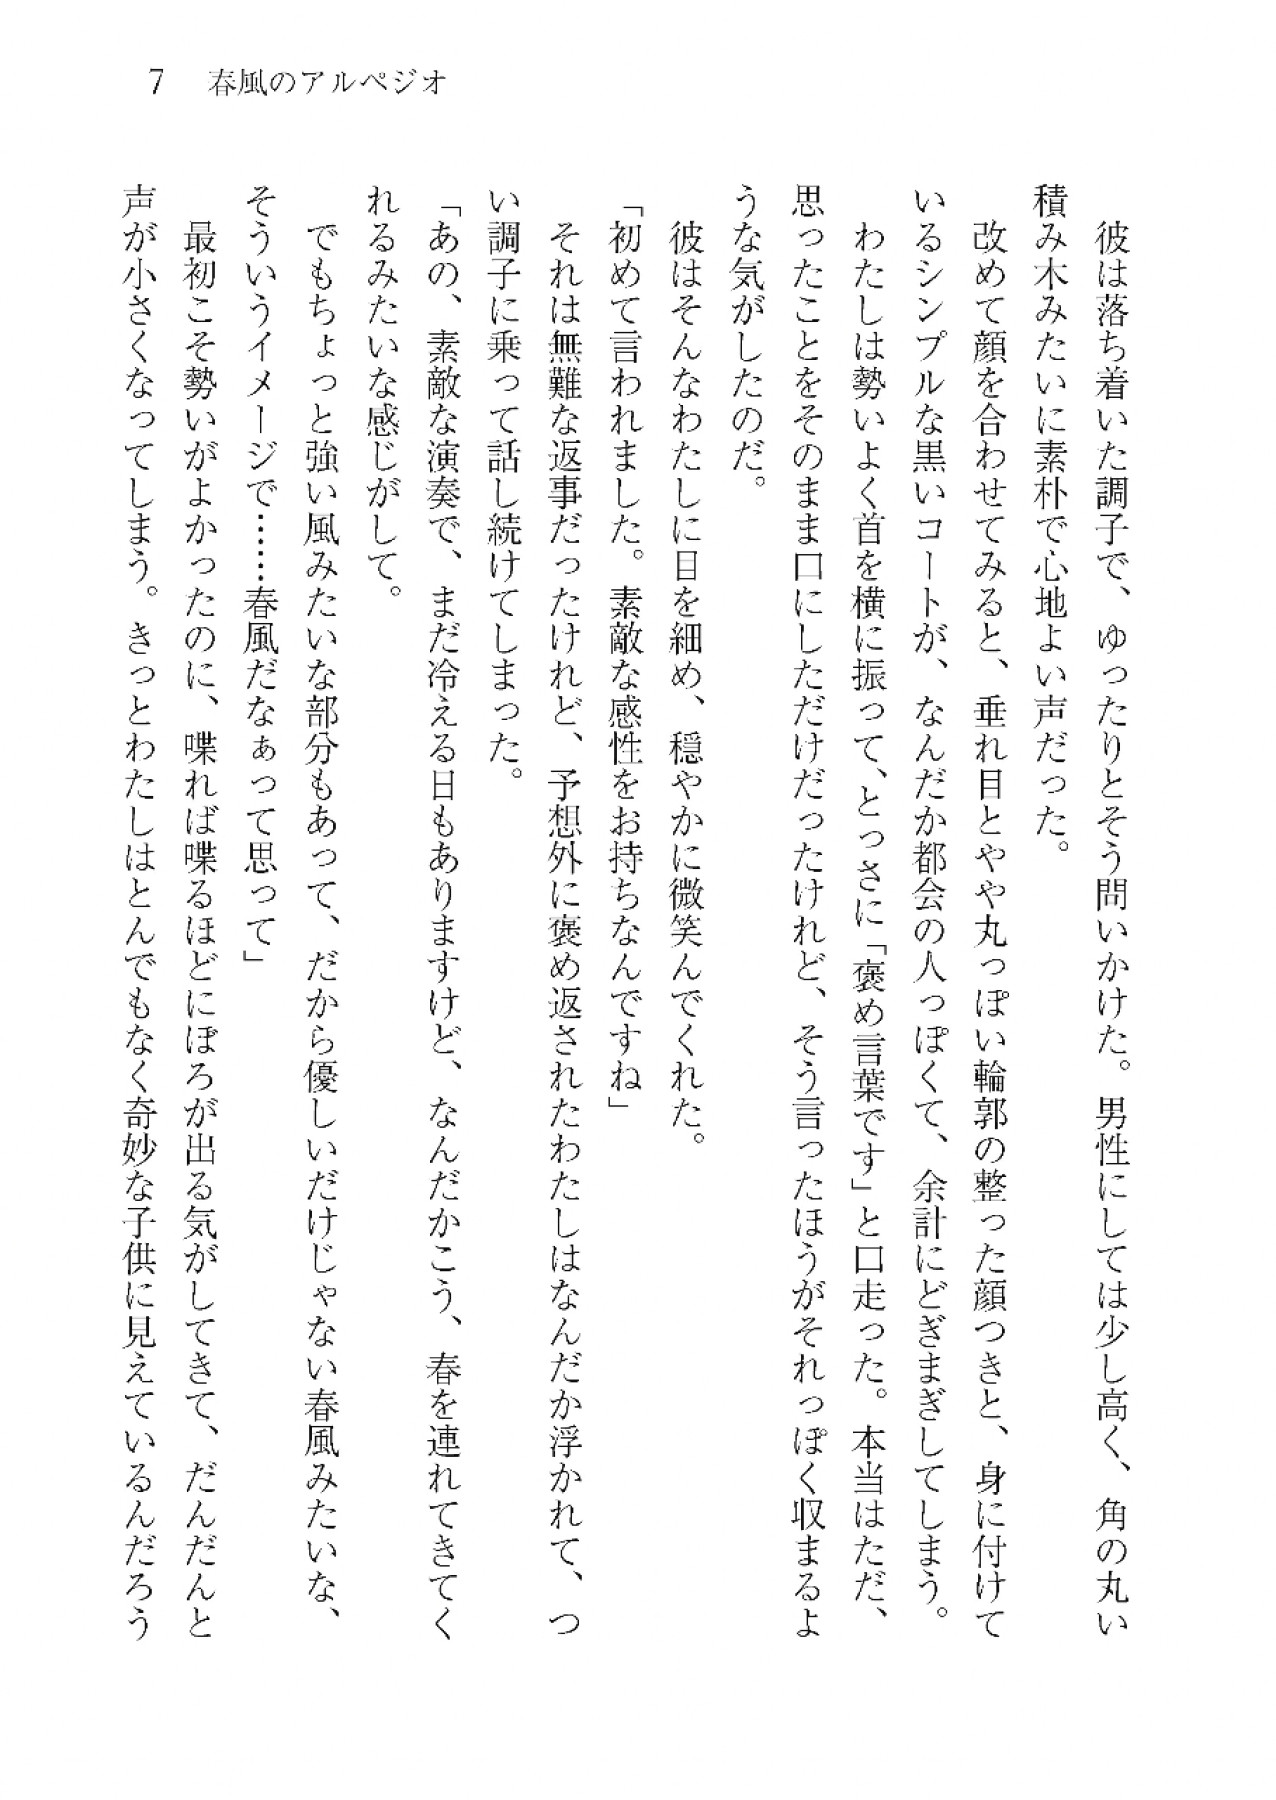 7 春風のアルペジオ
彼は落ち着いた調子で、ゆったりとそう問いかけた。男性にしては少し高く、角の丸い
積み木みたいに素朴で心地よい声だった。
改めて顔を合わせてみると、垂れ目とやや丸っぽい輪郭の整った顔つきと、身に付けて
いるシンプルな黒いコートが、なんだか都会の人っぽくて、余計にどぎまぎしてしまう。
わたしは勢いよく首を横に振って、とっさに「褒め言葉です」と口走った。本当はただ、
思ったことをそのまま口にしただけだったけれど、そう言ったほうがそれっぽく収まるよ
うな気がしたのだ。
彼はそんなわたしに目を細め、穏やかに微笑んでくれた。
「初めて言われました。素敵な感性をお持ちなんですね」
それは無難な返事だったけれど、予想外に褒め返されたわたしはなんだか浮かれて、つ
い調子に乗って話し続けてしまった。
「あの、素敵な演奏で、まだ冷える日もありますけど、なんだかこう、春を連れてきてく
れるみたいな感じがして。
でもちょっと強い風みたいな部分もあって、だから優しいだけじゃない春風みたいな、
そういうイメージで……春風だなぁって思って」
最初こそ勢いがよかったのに、喋れば喋るほどにぼろが出る気がしてきて、だんだんと
声が小さくなってしまう。きっとわたしはとんでもなく奇妙な子供に見えているんだろう